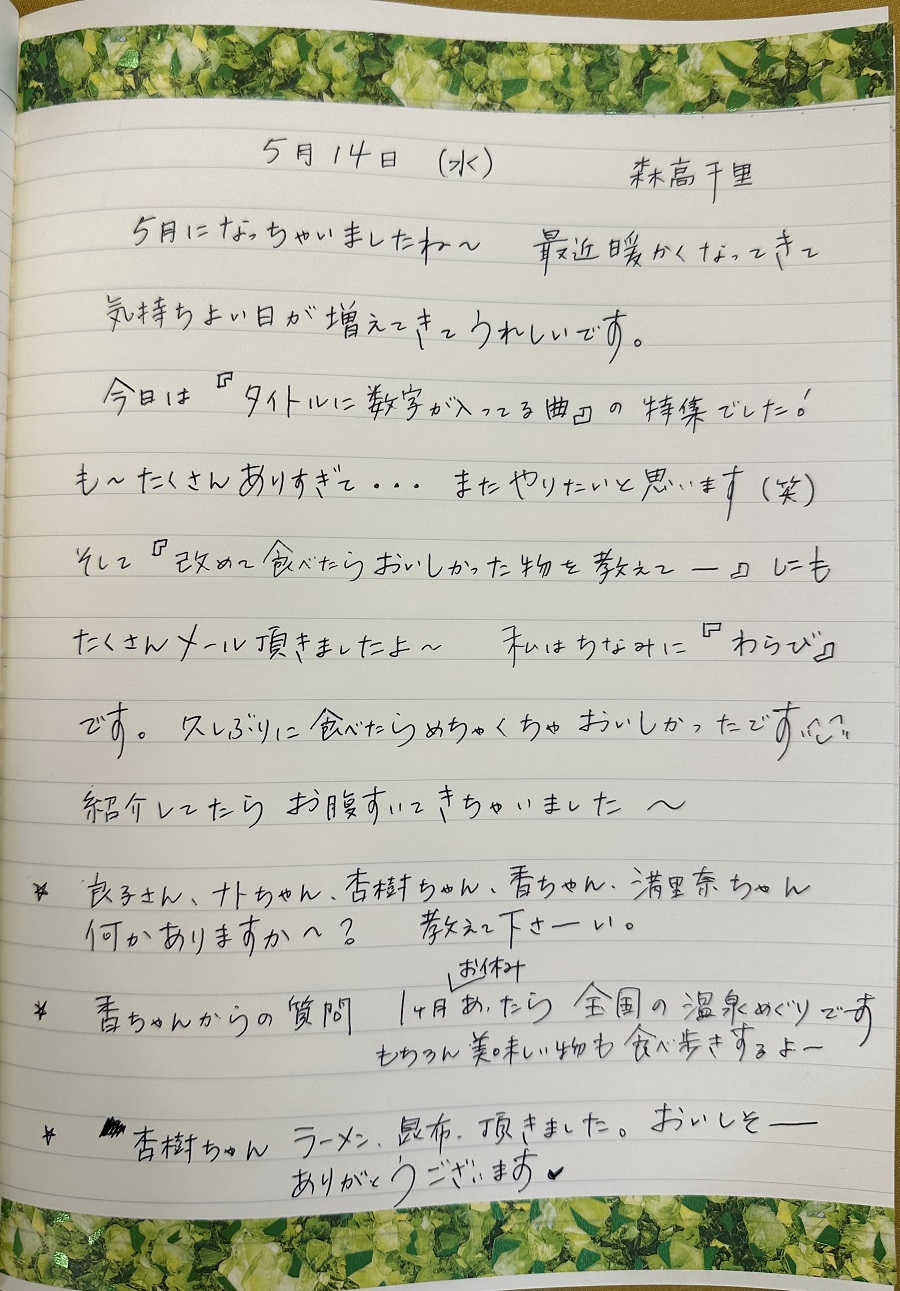 5月14日 (水) 森高千里
5月になっちゃいましたね～ 最近暖かくなってきて
気持ちよい日が増えてきてうれしいです。
今日は『タイトルに数字が入ってる曲』の特集でした!
も～たくさんありすぎて・・・ またやりたいと思います(笑)
そして『改めて食べたらおいしかった物を教えてー』にも
たくさんメール頂きましたよ～ 私はちなみに『わらび』
です。久しぶりに食べたらめちゃくちゃおいしかったです
紹介してたらお腹すいてきちゃいました～
☆ 良子さん、ナトちゃん、杏樹ちゃん、香ちゃん、満里奈ちゃん
何かありますか～? 教えて下さーい。
お休み
☆ 香ちゃんからの質問 1ヶ月あったら 全国の温泉めぐりです
もちろん美味しい物も食べ歩きするよー
☆ 杏樹ちゃん ラーメン、昆布、頂きました。おいしそー
ありがとうございます♥